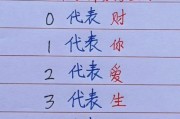 0 代表 财
1 代表 你
2 代表 爱
3 代表 生